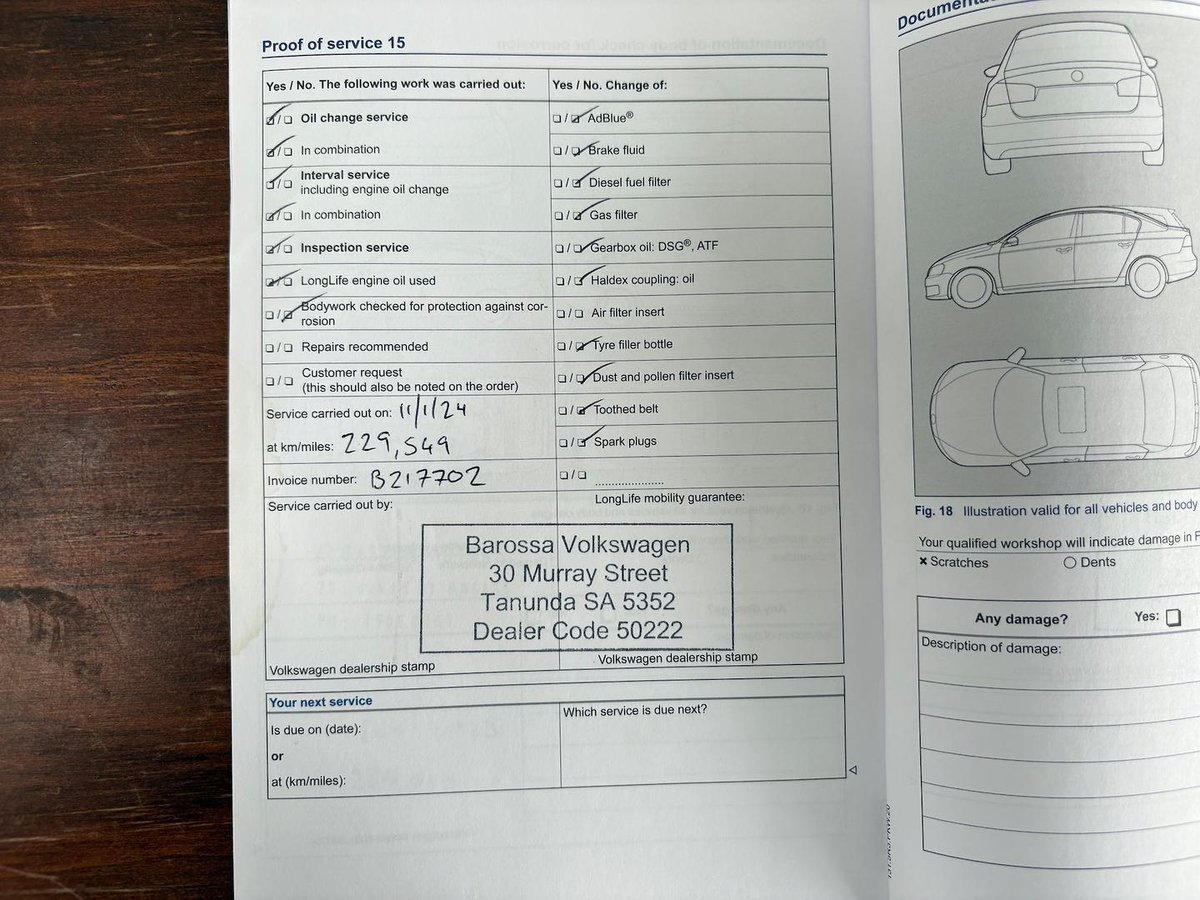 Proof of service 15
Yes / No. The following work was carried out:
Oil change service
In combination
Interval service
including engine oil change
In combination
Inspection service
LongLife engine oil used
Bodywork checked for protection against cor-
rosion
Repairs recommended
Customer request
(this should also be noted on the order)
Service carried out on: 11/1/24
at km/miles: 229,549
Invoice number: B217702
Service carried out by:
Yes / No. Change of:
AdBlue®
Brake fluid
Diesel fuel filter
Gas filter
Gearbox oil: DSG®, ATF
Haldex coupling: oil
Air filter insert
Tyre filler bottle
Dust and pollen filter insert
Toothed belt
Spark plugs
LongLife mobility guarantee:
Barossa Volkswagen
30 Murray Street
Tanunda SA 5352
Dealer Code 50222
Volkswagen dealership stamp
Volkswagen dealership stamp
Your next service
Is due on (date):
or
at (km/miles):
Which service is due next?
Fig. 18 Illustration valid for all vehicles and body
Your qualified workshop will indicate damage in
× Scratches
Dents
Any damage?
Yes:
Description of damage: